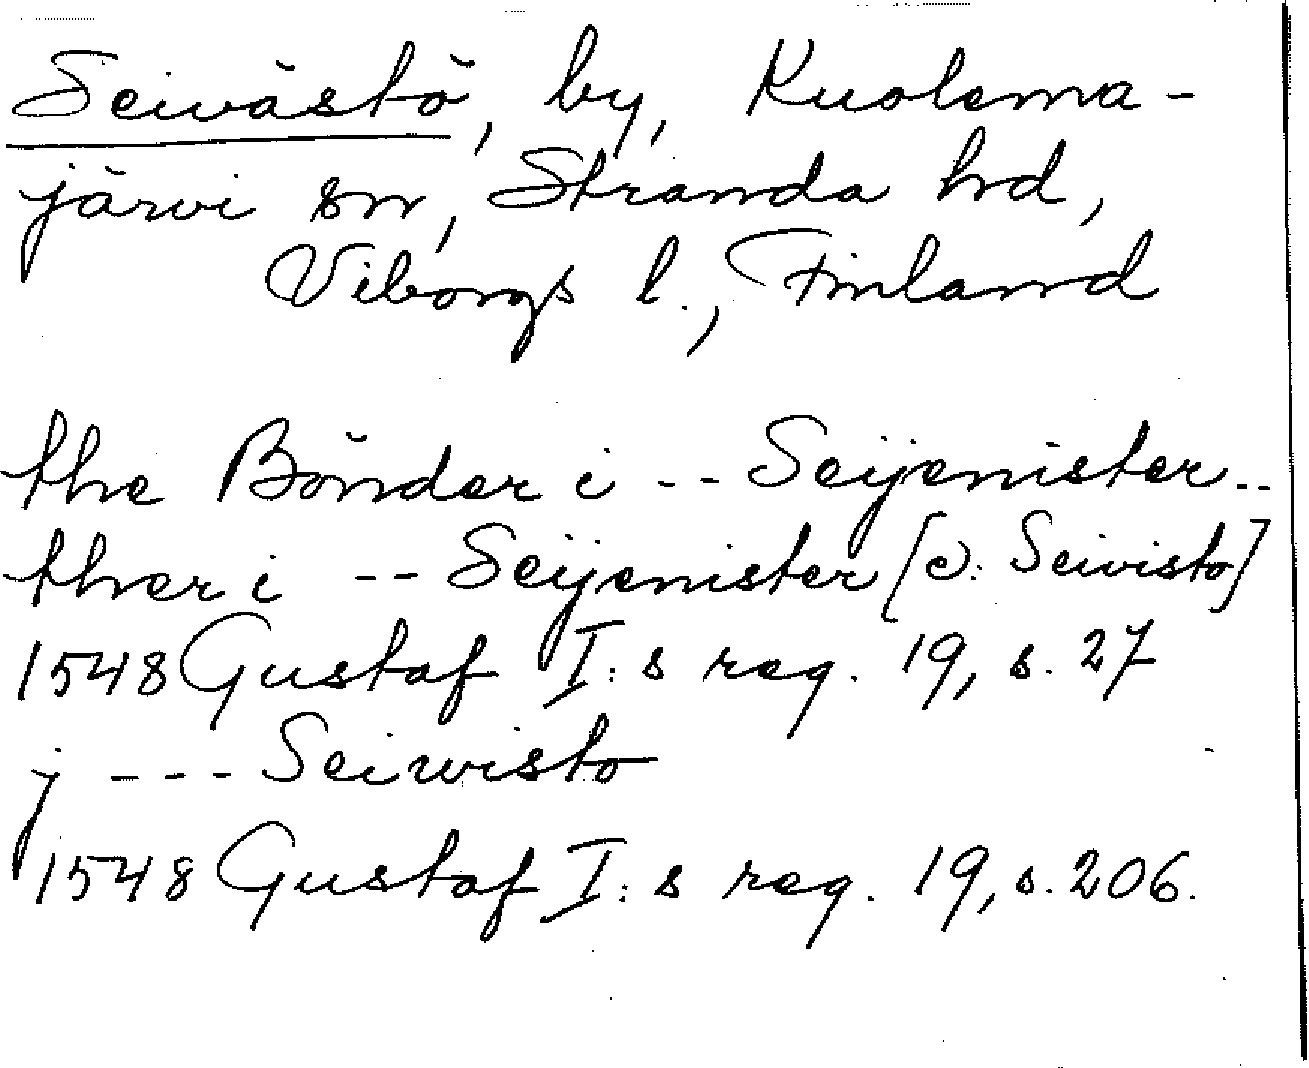 Seivästö, by, Kuolema-
järvi sn, Stranda hd,
Viborgs l., Finland
the Bönder i -- Seijenister --
ther i -- Seijenister [ɔ: Seivisto]
1548 Gustaf I:s reg. 19, s. 27
j --- Seiwisto
1548 Gustaf I:s reg. 19, s. 206.